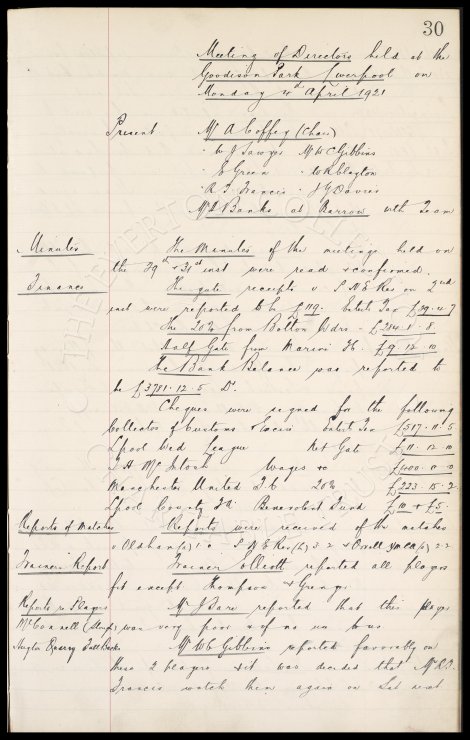 30
Meeting of Directors held at the
Goodison Park Liverpool on
Monday 4th April 1921
Present Mr A Coffey (Chair)
" W J Sawyer Mr W C Gibbins
" Green " W R Clayton
" Francis " Davies
Mr Banks at Barrow with Team
Minutes The Minutes of the meetings held on
the 29th & 31st inst were read & confirmed.
Finance The gate receipts v on 2nd
inst were reported to be £119. Entert Tax £29.4.7
The 20% from Bolton Wdrs - £284.11.8.
Half Gate from £9.12.10
The Bank Balance was reported to
be £3781.12.5 Dr.
Cheques were signed for the following
Collector of Customs & Excise Entert Tax £517.11.5
Lpool Wed League Net Gate £11.12.10
McIntosh Wages &c £400.0.0
Manchester United F.C. 20% £223.15.2
Lpool County F.A. Benevolent Fund £10 & £5.
Reports of Matches Reports were received of the matches
v Oldham 1-0 3-2 & Orrell YMCA 2-2
Trainers Report Trainer reported all players
fit except Thompson & Grenyer
Reports re Players Mr J Bare reported that this player
McConnell was very poor & of no use to us
Full Backs Mr W C Gibbins reported favorably on
these 2 players & it was decided that Mr
Francis watch them again on Sat next